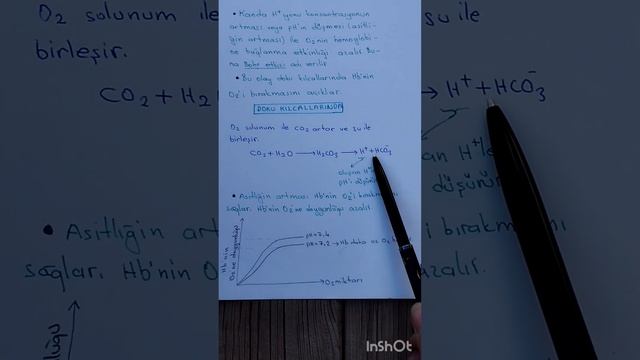 • Kanda H⁺ iyonu konsantrasyonun
artması veya pH'ın düşmesi (asitli-
ğin artması) ile O₂'nin hemoglobi-
ne bağlanma etkinliği azalır. Bu-
na Bohr etkisi adı verilir
• Bu olay doku kılcallarında Hb'nin
O₂'i bırakmasını açıklar.
DOKU KILCALLARINDA
O₂ solunum ile CO₂ artar ve su ile
birleşir.
CO₂ + H₂O → H₂CO₃ → H⁺ + HCO₃⁻
oluşan H⁺
pH'ı düşür
• Asitliğin artması Hb'nin O₂'i bırakmasını
sağlar. Hb'nin O₂'ne doygunluğu azalır.
Hb'nin
O₂'ne doygunluğu
pH=7,4
pH=7,2 → Hb daha az O₂
O₂ miktarı
InShOt